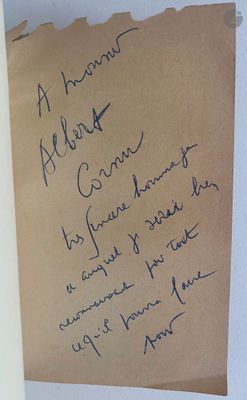 A Monsieur
Albert
Cornu
très sincère hommage
auquel je serai très
reconnaissant pour tout
ce qu'il pourra faire